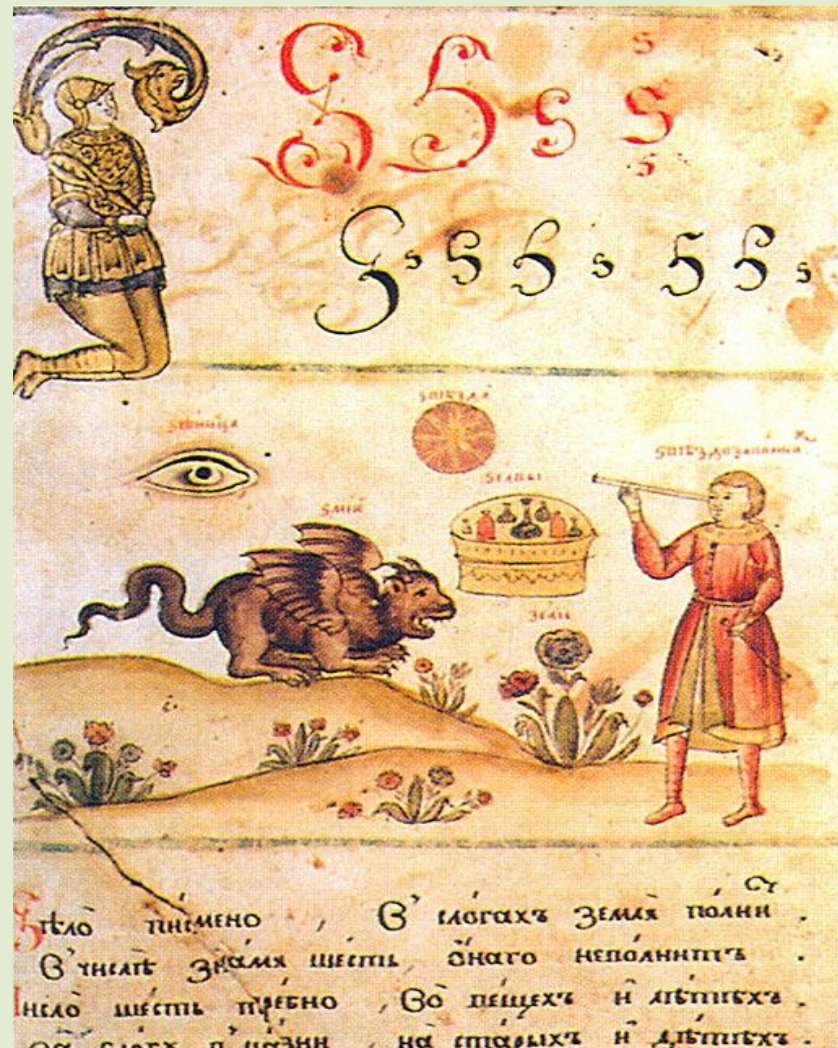 Ѕ Ѕ ѕ ѕ ѕ ѕ
Ѕ ѕ ѕ ѕ ѕ ѕ ѕ ѕ
ѕѣница
ѕвѣзда
ѕвѣздозаконни
ѕмїй
зелїе
Ѕѣло̀ пи́смено , В' сло́гахъ землѧ̀ по́лни .
В' числѣ̀ зна́мѧ ше́сть ѻ́наго непо́лнитъ .
Число̀ ше́сть тре́бно , Во ве́щехъ и лѣ́тѣхъ .
на ста́рыхъ и дѣ́тѣхъ .